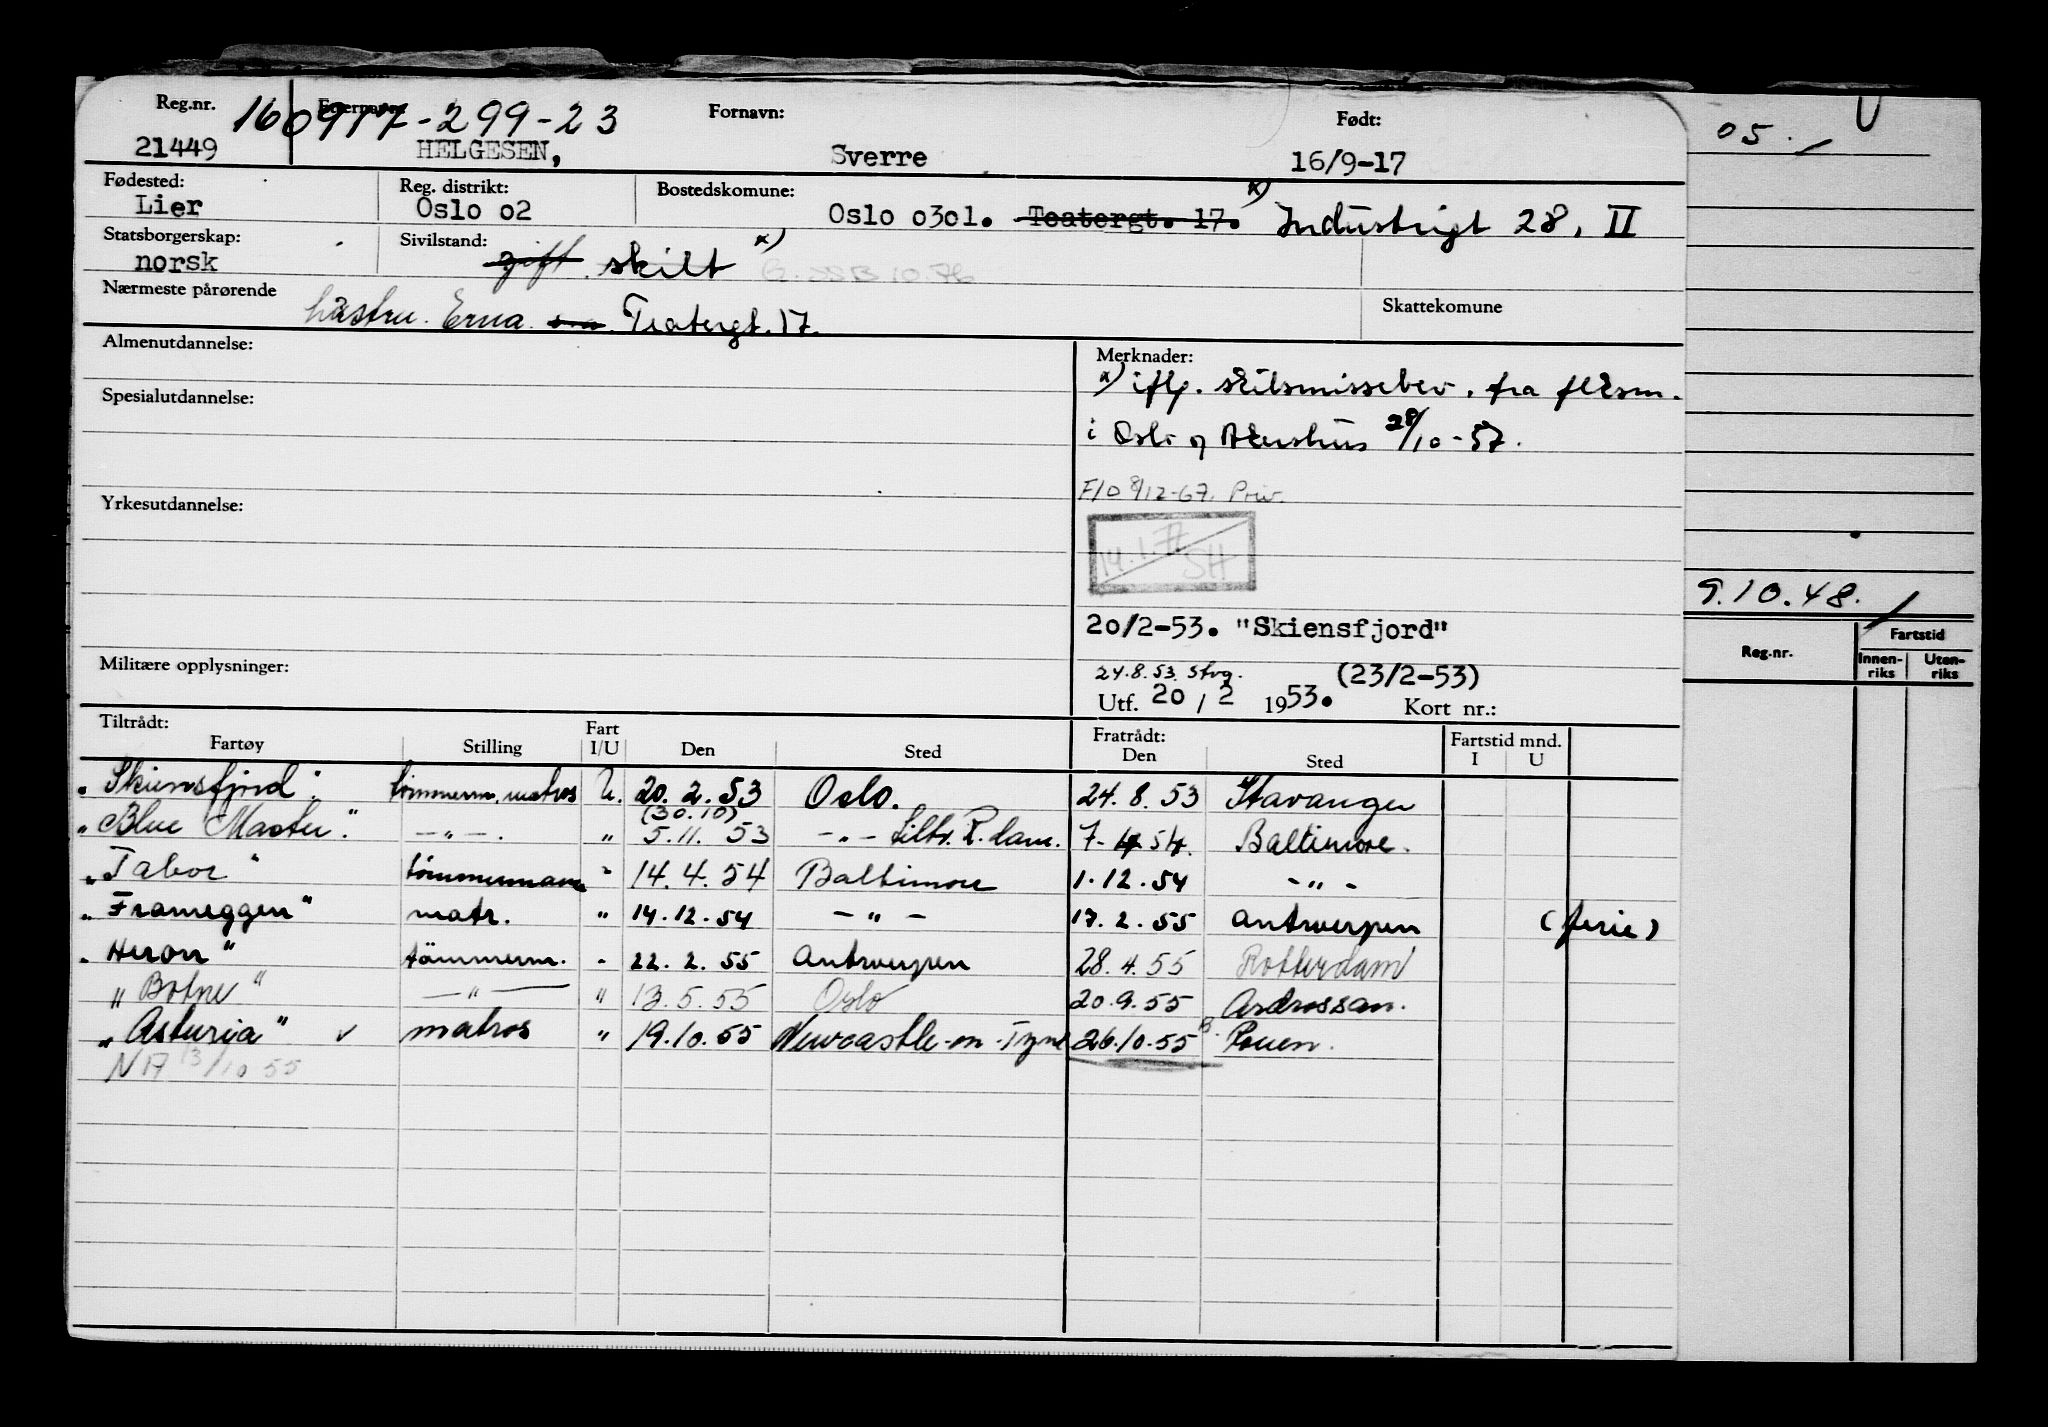 Reg.nr. 160917-299-23 Fornavn: Født: 05.
21449 HELGESEN, Sverre 16/9-17
Fødested: Reg. distrikt: Bostedskomune: x)
Lier Oslo o2 Oslo o3o1. Teatergt. 17. Industrigt 28, II
Statsborgerskap: Sivilstand: x)
norsk gift skilt
Nærmeste pårørende Skattekomune
hustru Erna Teatergt. 17.
Almenutdannelse: Merknader:
x) iflg. skilsmissebev. fra flkesm.
Spesialutdannelse:
i Oslo og Akershus 28/10-57.
F/O 8/12-67. Priv.
Yrkesutdannelse:
14.1.77 SH
9.10.48.
20/2-53. "Skiensfjord"
Fartstid
Reg.nr. Innen-riks Uten-riks
Militære opplysninger: 24.8.53. Stvg. (23/2-53)
Utf. 20 / 2 1953. Kort nr.:
Tiltrådt: Fart Fratrådt: Fartstid mnd.
Fartøy Stilling I/U Den Sted Den Sted I U
"Skiensfjord". tömmerm. matros U. 20.2.53 Oslo. 24.8.53 Stavanger
(30.10)
"Blue Master". -"-. " 5.11.53 -"- Siltr. R.dam. 7-4 54. Baltimore.
"Tabor" tömmermann " 14.4.54 Baltimore 1.12.54 -"-
"Frameggen" matr. " 14.12.54 -"- 17.2.55 Antwerpen (ferie)
"Heron" tömmerm. " 22.2.55 Antwerpen 28.4.55 Rotterdam
"Botne" -"- " 13.5.55 Oslo 20.9.55 Ardrossan.
"Asturia" v matros " 19.10.55 Newcastle-on-Tyne 26.10.55 Rouen.
N17 13/10 55